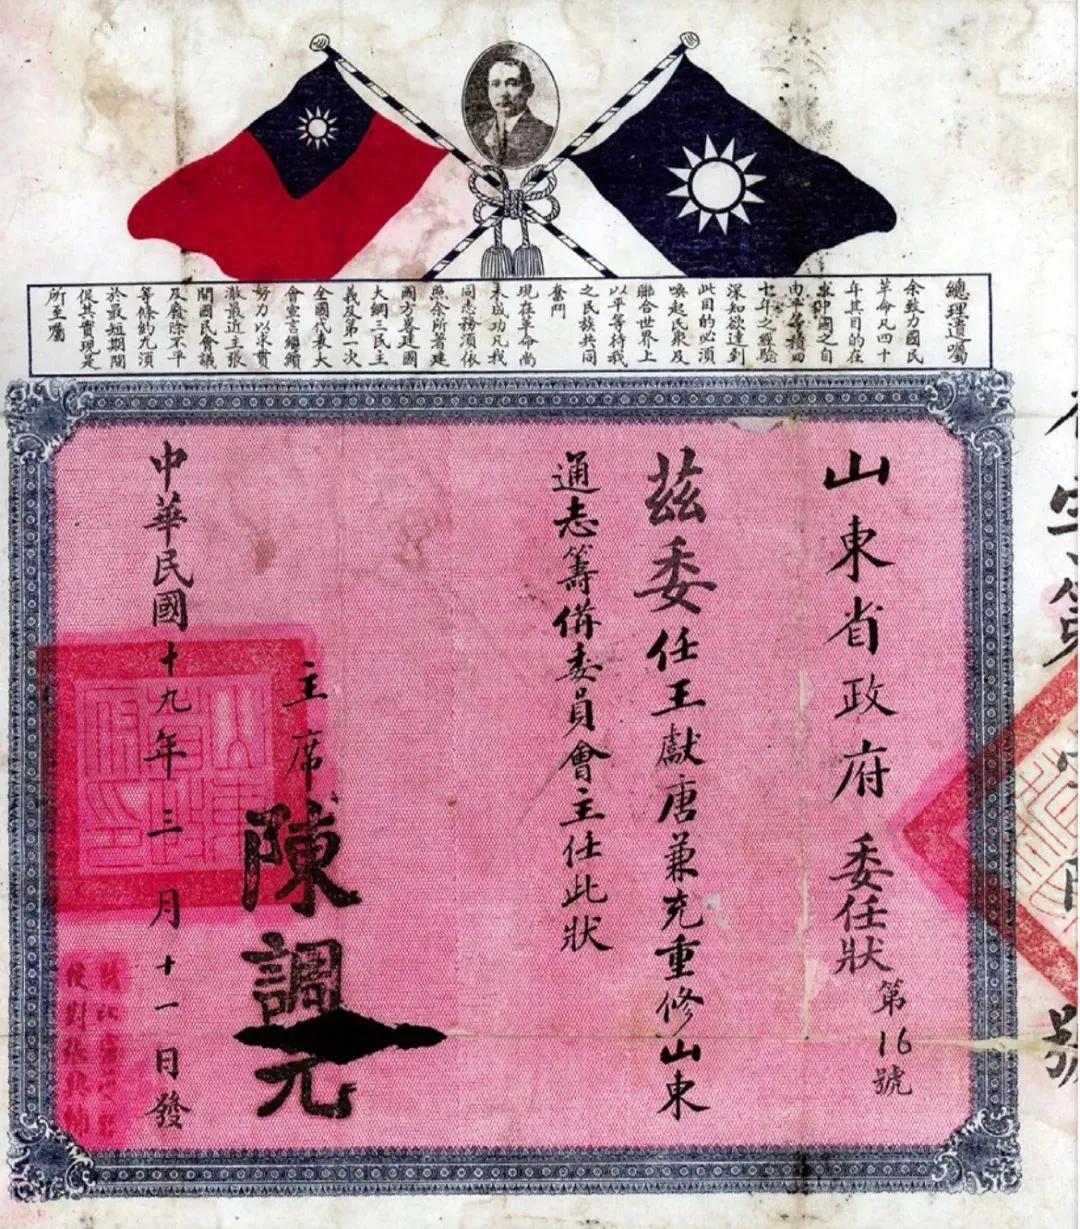 總理遺囑
余致力國民
革命凡四十
年其目的在
求中國之自
由平等積四
十年之經驗
深知欲達到
此目的必須
喚起民衆及
聯合世界上
以平等待我
之民族共同
奮鬥
現在革命尚
未成功凡我
同志務須依
照余所著建
國方畧建國
大綱三民主
義及第一次
全國代表大
會宣言繼續
努力以求貫
澈最近主張
開國民會議
及廢除不平
等條約尤須
於最短期間
促其實現是
所至囑
山東省政府委任狀第16號
茲委任王獻唐兼充重修山東
通志籌備委員會主任此狀
主席陳調元
中華民國十九年三月十一日發
字第
號